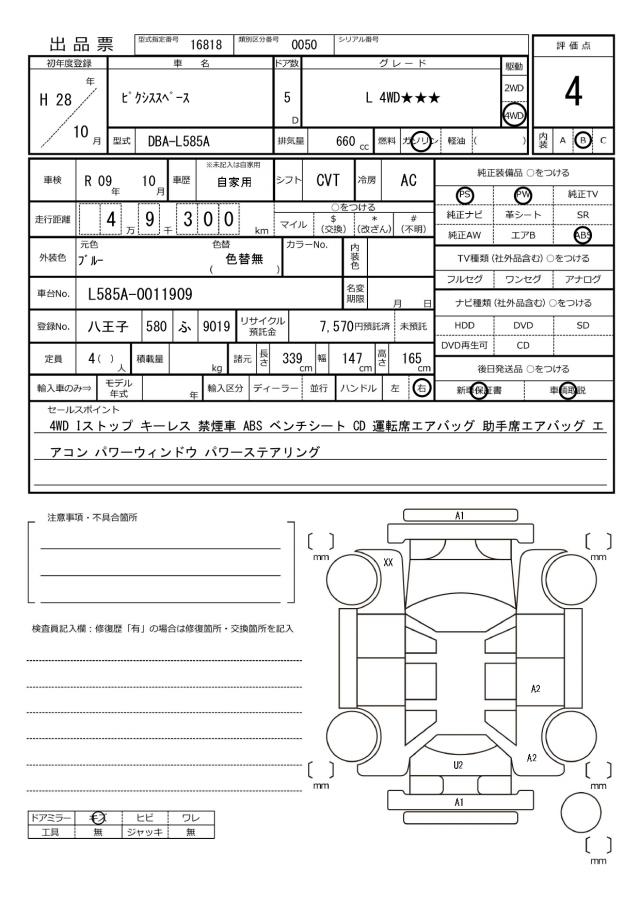 出品票 型式指定番号 16818 類別区分番号 0050 シリアル番号
評価点
4
内装 A B C
初年度登録 車名 ドア数 グレード 駆動
H 28 年 ピクシススペース 5 D L 4WD★★★ 2WD
10 月 4WD
型式 DBA-L585A 排気量 660 cc 燃料 ガソリン 軽油 ( )
車検 R 09 年 10 月 車歴 ※未記入は自家用 自家用 シフト CVT 冷房 AC
走行距離 4 万 9 千 3 0 0 km ○をつける
マイル $ (交換) * (改ざん) # (不明)
外装色 元色 ブルー 色替 ( 色替無 ) カラーNo. 内装色
車台No. L585A-0011909 名変期限 月 日
登録No. 八王子 580 ふ 9019 リサイクル預託金 7,570円預託済 未預託
定員 4 ( ) 人 積載量 kg 諸元 長さ 339 cm 幅 147 cm 高さ 165 cm
輸入車のみ⇒ モデル年式 年 輸入区分 ディーラー 並行 ハンドル 左 右
純正装備品 ○をつける
PS PW 純正TV
純正ナビ 革シート SR
純正AW エアB ABS
TV種類 (社外品含む) ○をつける
フルセグ ワンセグ アナログ
ナビ種類 (社外品含む) ○をつける
HDD DVD SD
DVD再生可 CD
後日発送品 ○をつける
新車保証書 車輌取説
セールスポイント
4WD Iストップ キーレス 禁煙車 ABS ベンチシート CD 運転席エアバッグ 助手席エアバッグ エ
アコン パワーウィンドウ パワーステアリング
注意事項・不具合箇所
検査員記入欄：修復歴「有」の場合は修復箇所・交換箇所を記入
ドアミラー キズ ヒビ ワレ
工具 無 ジャッキ 無
A1
mm
mm
XX
A2
A2
U2
mm
mm
A1
mm